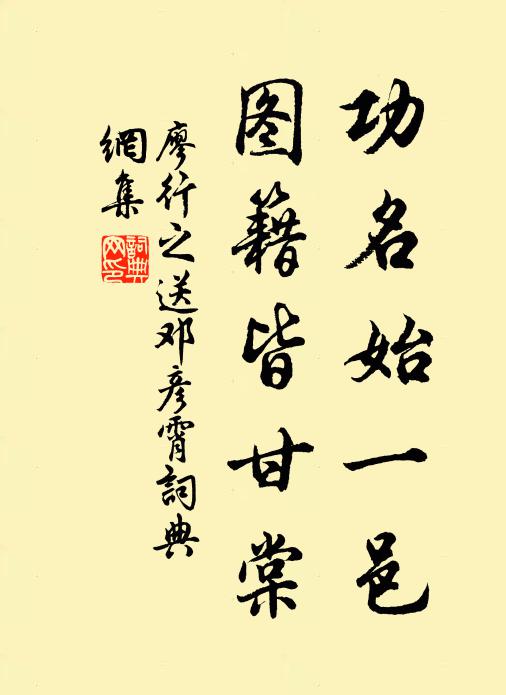 功名始一邑
图籍皆甘棠
廖行之送邓彦霄詞典
網集
詞典
网印